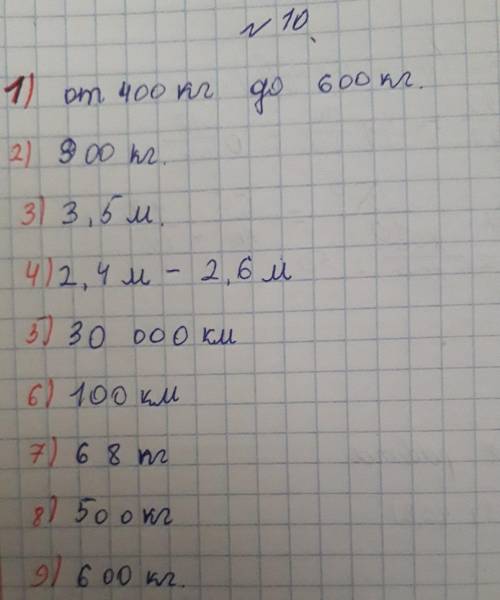 № 10.
1) от 400 кг до 600 кг.
2) 900 кг.
3) 3,5 м.
4) 2,4 м - 2,6 м
5) 30 000 км
6) 100 км
7) 68 кг
8) 500 кг
9) 600 кг.